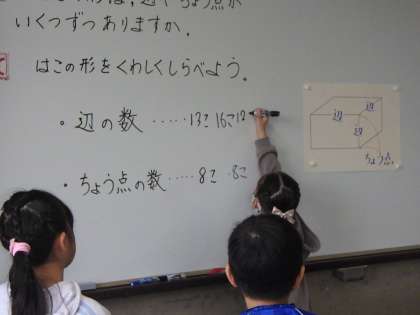 いくつずつありますか。
はこの形をくわしくしらべよう。
・辺の数 ‥‥‥13こ 16こ12
・ちょう点の数‥‥‥8こ 8こ
辺
辺
辺
ちょう点